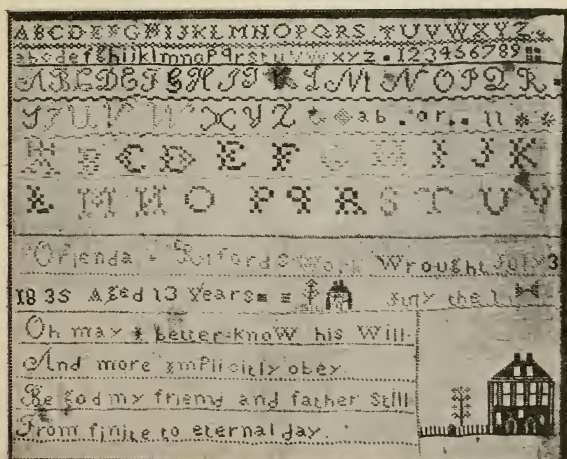 ABCDEFGHIJKLMNOPQRS TUVWXYZ
abcdefghijklmnopqrstuvwxyz.123456789
ABCDEFGHIJKLMNOPQR
STUVWXYZ & ab. or. 11
ABCDEFGHIJK
LMNOPQRSTUV
Orlenda Work Wrought July 3
1835 Aged 13 Years July the
Oh may I better know his Will
And more implicitly obey
Be God my friend and father Still
From finite to eternal day.